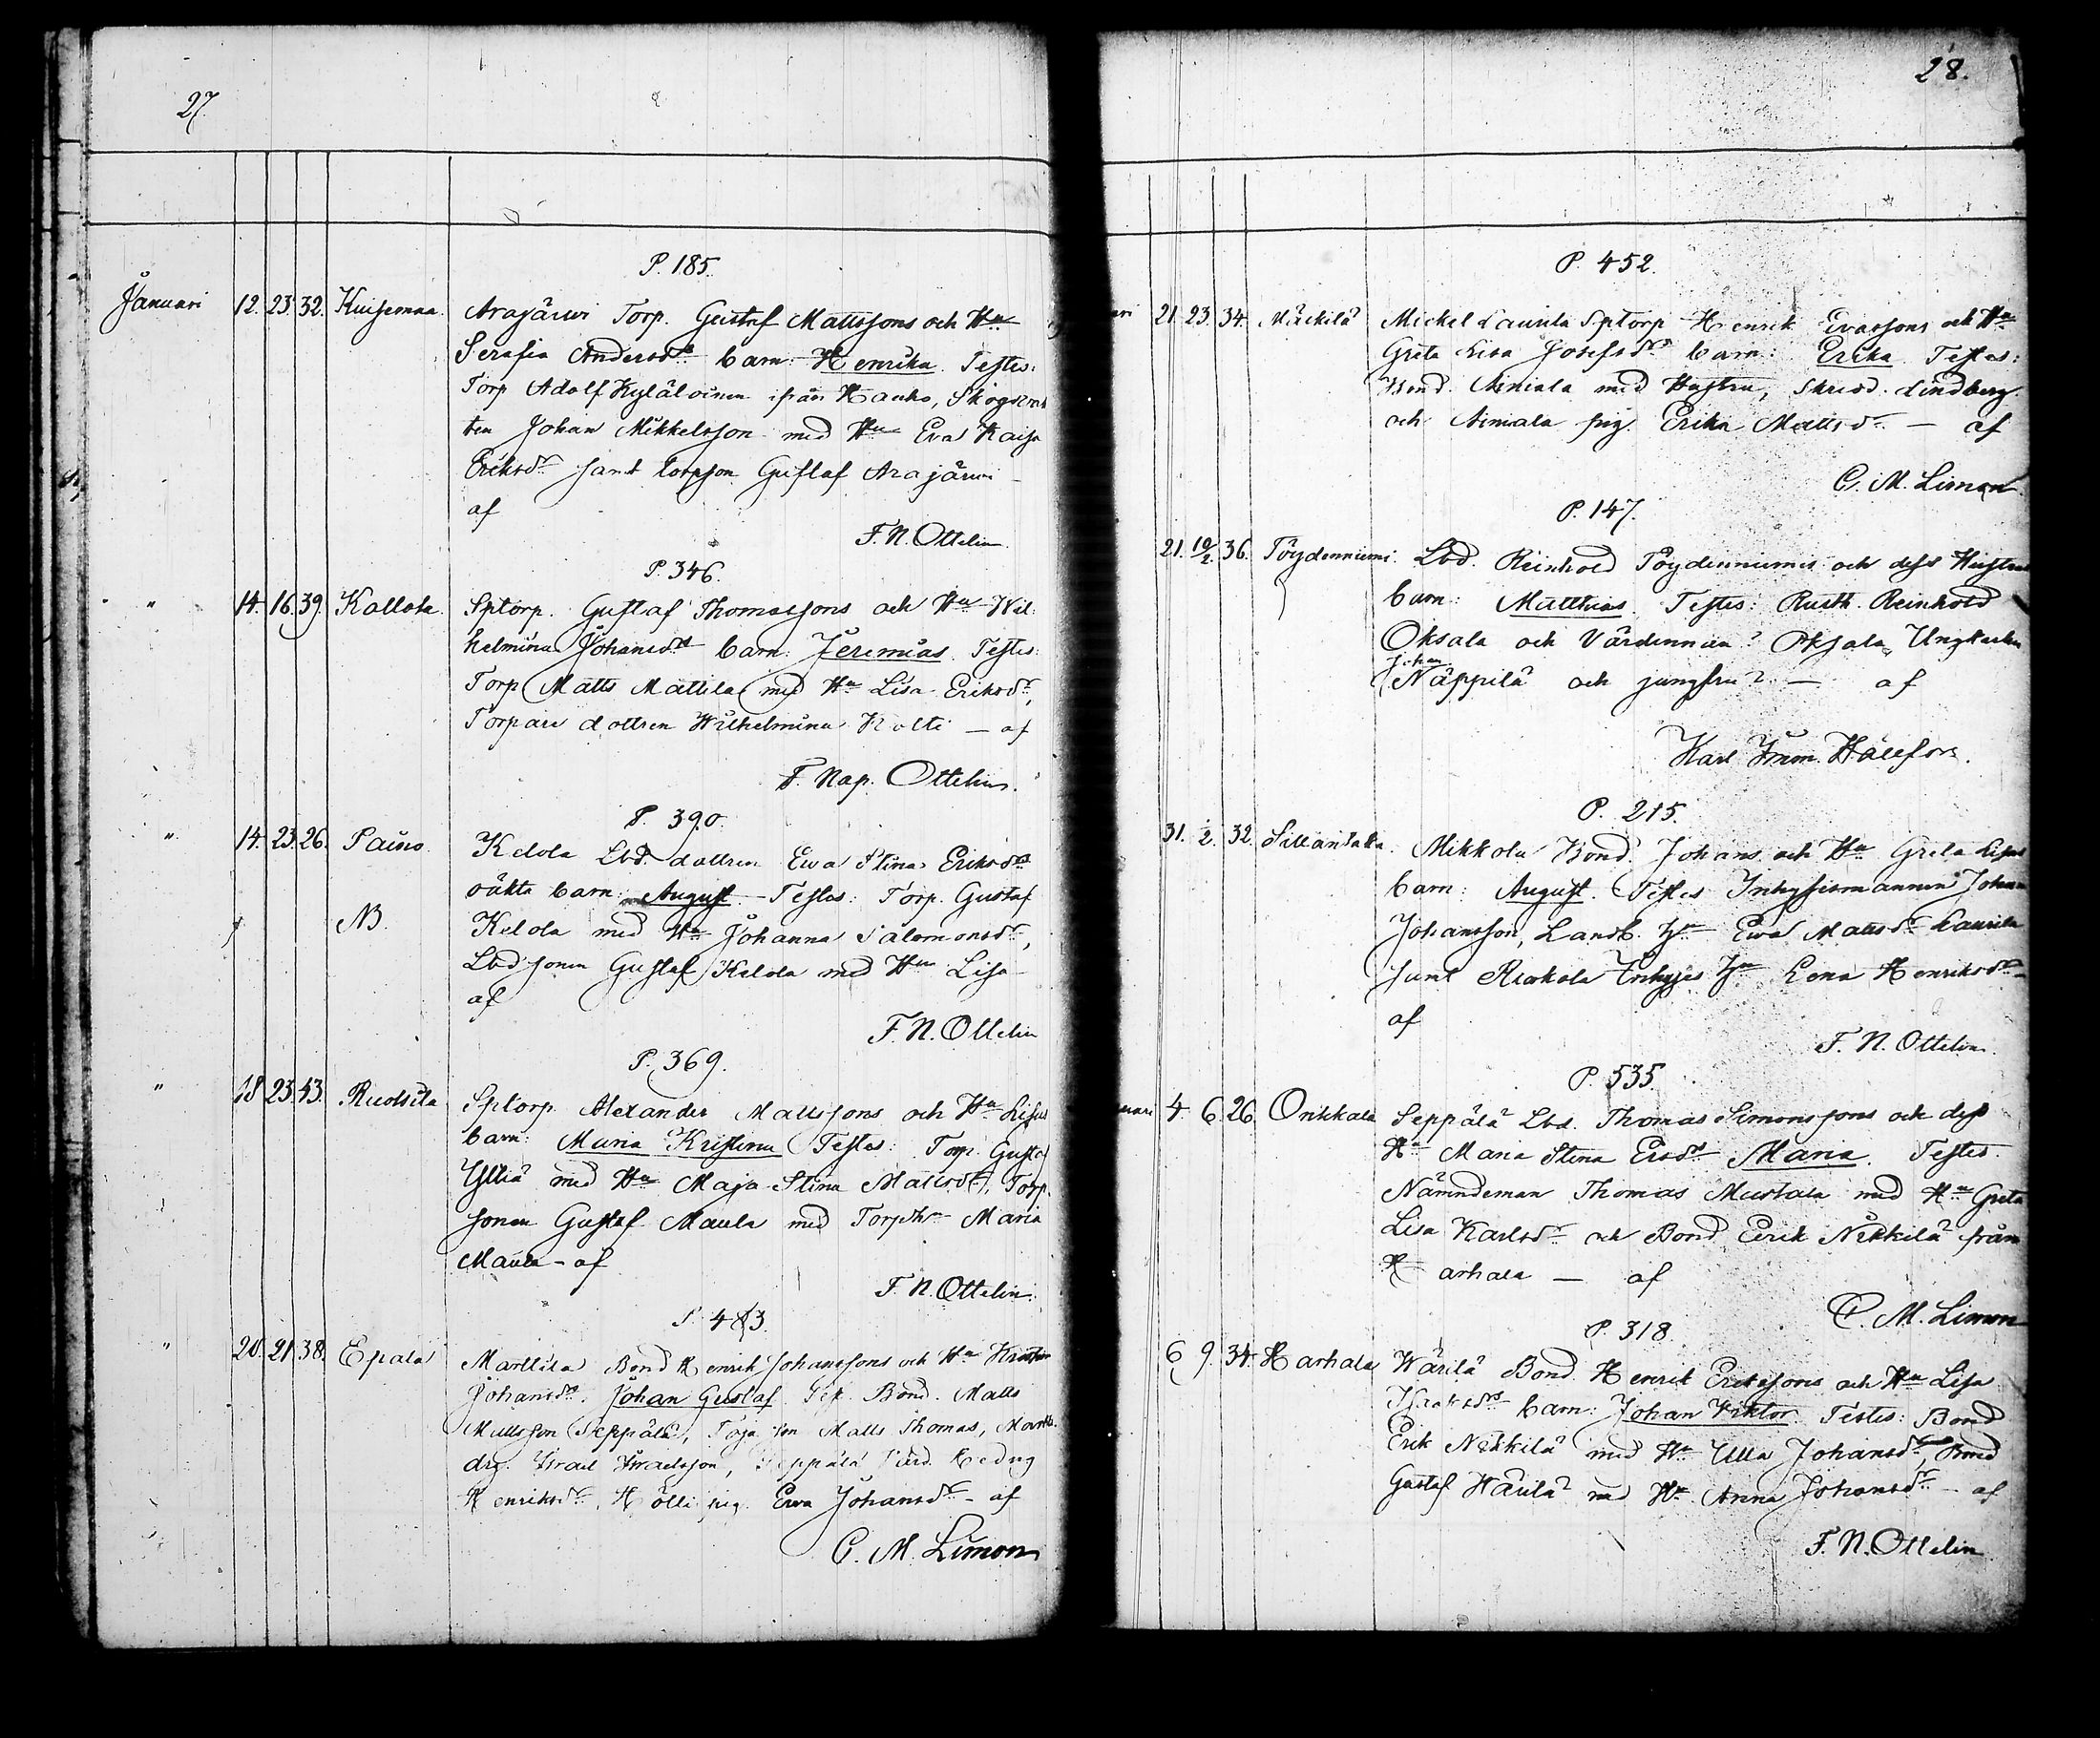 27.
P. 185.
Januari 12. 23. 32. Kuisemaa. Arajärwi Torp. Gustaf Mattssons och Hu
Serafia Andersdrs barn: Henrika. Testes:
Torp Adolf Kyläloinen ifrån Hauho, Skogsvak
ten Johan Mikkelsson med Hu Eva Kaisa
Eriksdr samt torpson Gustaf Arajärwi
af
F. N. Ottelin.
P. 346.
" 14. 16. 39. Kallola. Sptorp. Gustaf Thomassons och Hu Wil
helmina Johansdrs barn: Jeremias. Testes:
Torp Matts Mattila med Hu Lisa Eriksdr,
Torpare dottren Wilhelmina Kolti — af
F. Nap. Ottelin.
P. 390.
" 14. 23. 26. Paino. Kelola Lbd. dottren Ewa Stina Eriksdrs
oäkta barn: August. Testes: Torp. Gustaf
NB. Kelola med Hu Johanna Salomonsdr,
Lbdsonen Gustaf Kelola med Hu Lisa
af
F. N. Ottelin
P. 369.
" 18 23. 43. Ruotsila Sptorp. Alexander Mattssons och Hu Lisas
barn: Maria Kristina Testes: Torp. Gustaf
Ylliä med Hu Maja Stina Mattsdr, Torp.
sonen Gustaf Maula med Torphu Maria
Maula - af
F. N. Ottelin.
P. 483.
" 20. 21. 38. Epaala Marttila Bond Henrik Johanssons och Hu
Johansdr. Johan Gustaf. Bond. Matts
Mattsson Seppälä, son Matts Thomas,
drg. Israel Israelsson, Seppälä Hedvig
Henriksdr, Hölli pig. Ewa Johansdr - af
C. M. Limon
28.
P. 452.
21. 23. 34. Mäckilä Mickel Laurila Sptorp Henrik Evassons och Hu
Greta Lisa Josefsdrs barn: Erika. Testes:
Bond. Niniala med Hustru, Skrsd. Lindberg
och Niniala pig. Erika Mattsdr — af
C. M. Limon.
P. 147.
21. 10/2. 36. Töydenniemi. Lbd. Reinhold Töydenniemis och dess Hustrus
barn: Matthias. Testes: Rusth. Reinhold
Oksala och Värdinnan? Oksala, Ungkarlen
Johan
Näppilä och jungfru? — af
Karl Imm. Hällfors.
P. 215.
31. 2. 32. Sillantaka. Mikkola Bond. Johans och Hu Greta Lisas
barn: August. Testes Inhysismannen Johan
Johansson, Landb. Hu Ewa Mattsdr Laurila
samt Inhyses Hu Lena Henriksdr —
af
F. N. Ottelin.
P. 535.
4. 6. 26. Onkkala Seppälä Lbd. Thomas Simonssons och dess
Hu Maria Stina Ersdrs Maria. Testes.
Nämndeman Thomas Mustala med Hu Greta
Lisa Karlsdr och Bond Erik Nikkilä från
Harhala — af
C. M. Limon
P. 318.
6 9. 34. Harhala Wärilä Bond. Henrik Erikssons och Hu Lisa
Isaksdrs barn: Johan Viktor. Testes: Bond
Erik Nikkilä med Hu Ulla Johansdr, Bond
Gustaf Wärilä med Hu Anna Johansdr — af
F. N. Ottelin